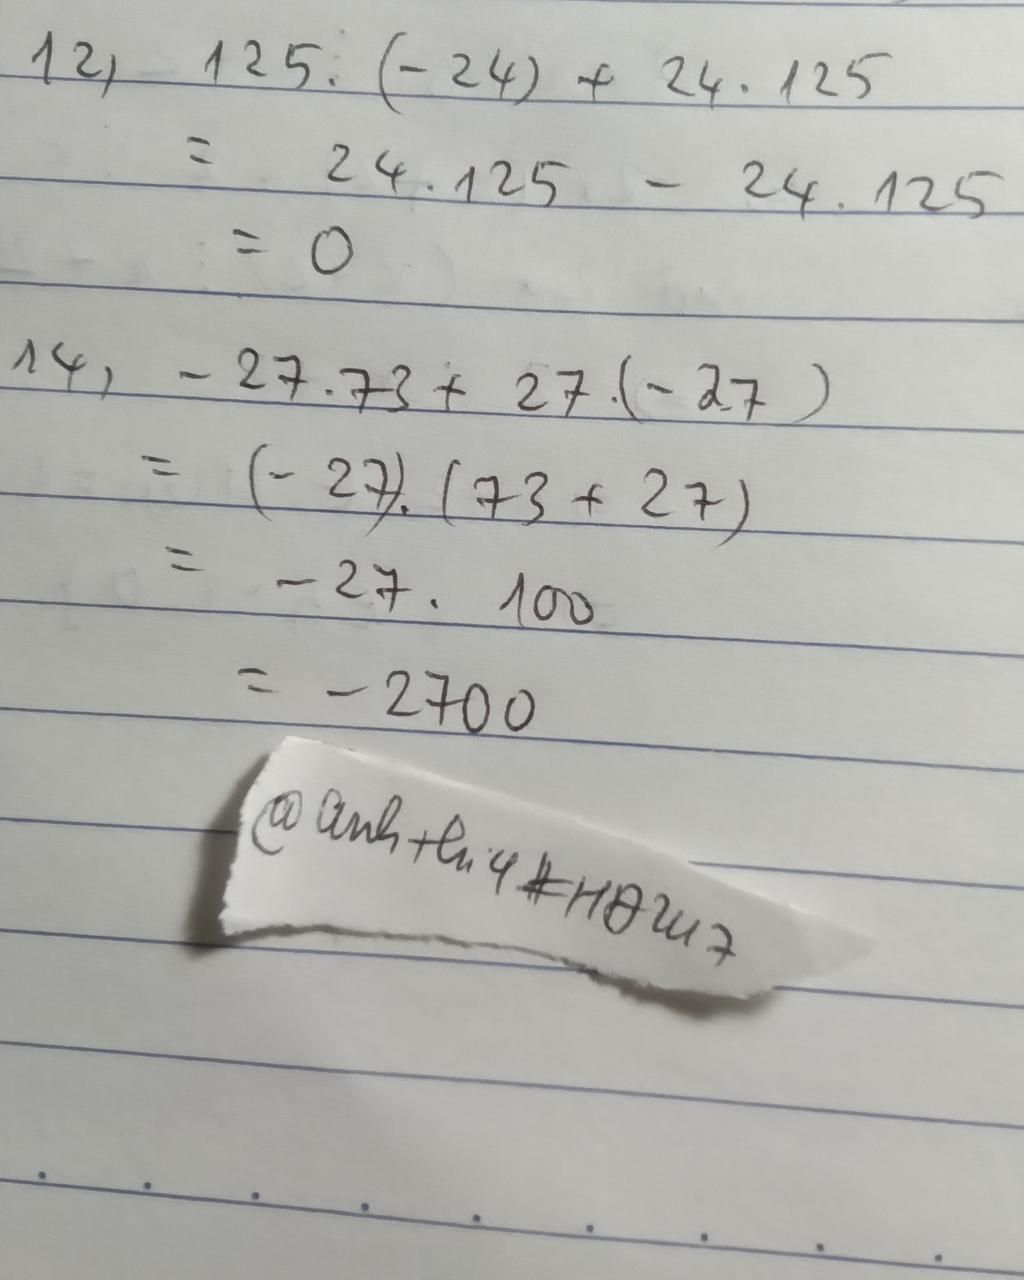 12, 125. (-24) + 24. 125
= 24.125 - 24.125
= 0
14, -27.73 + 27.(-27)
= (-27). (73 + 27)
= -27. 100
= -2700